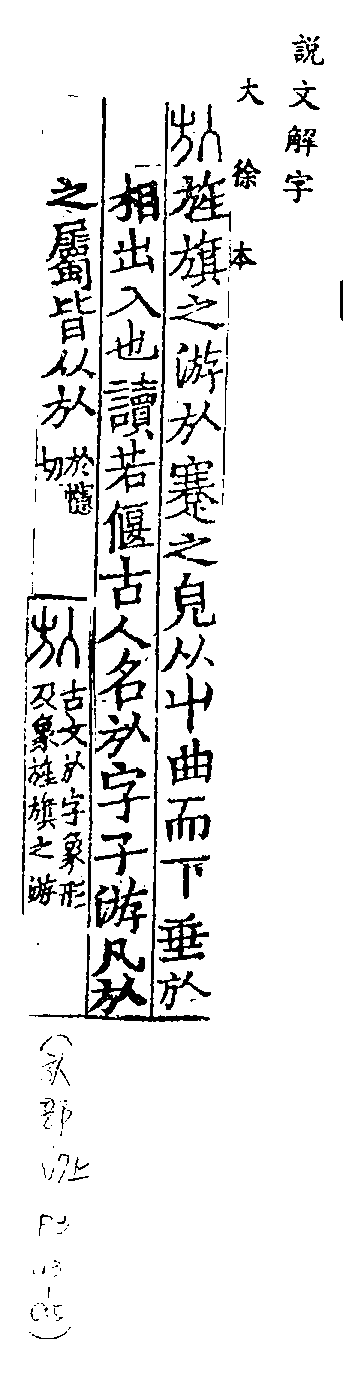 説文解字
大徐本
㫃旌旗之游㫃蹇之皃从屮曲而下垂㫃
相出入也讀若偃古人名㫃字子游凡㫃
之屬皆从㫃
於幰
切
㫃
古文㫃字象形
及象旌旗之游
(㫃部